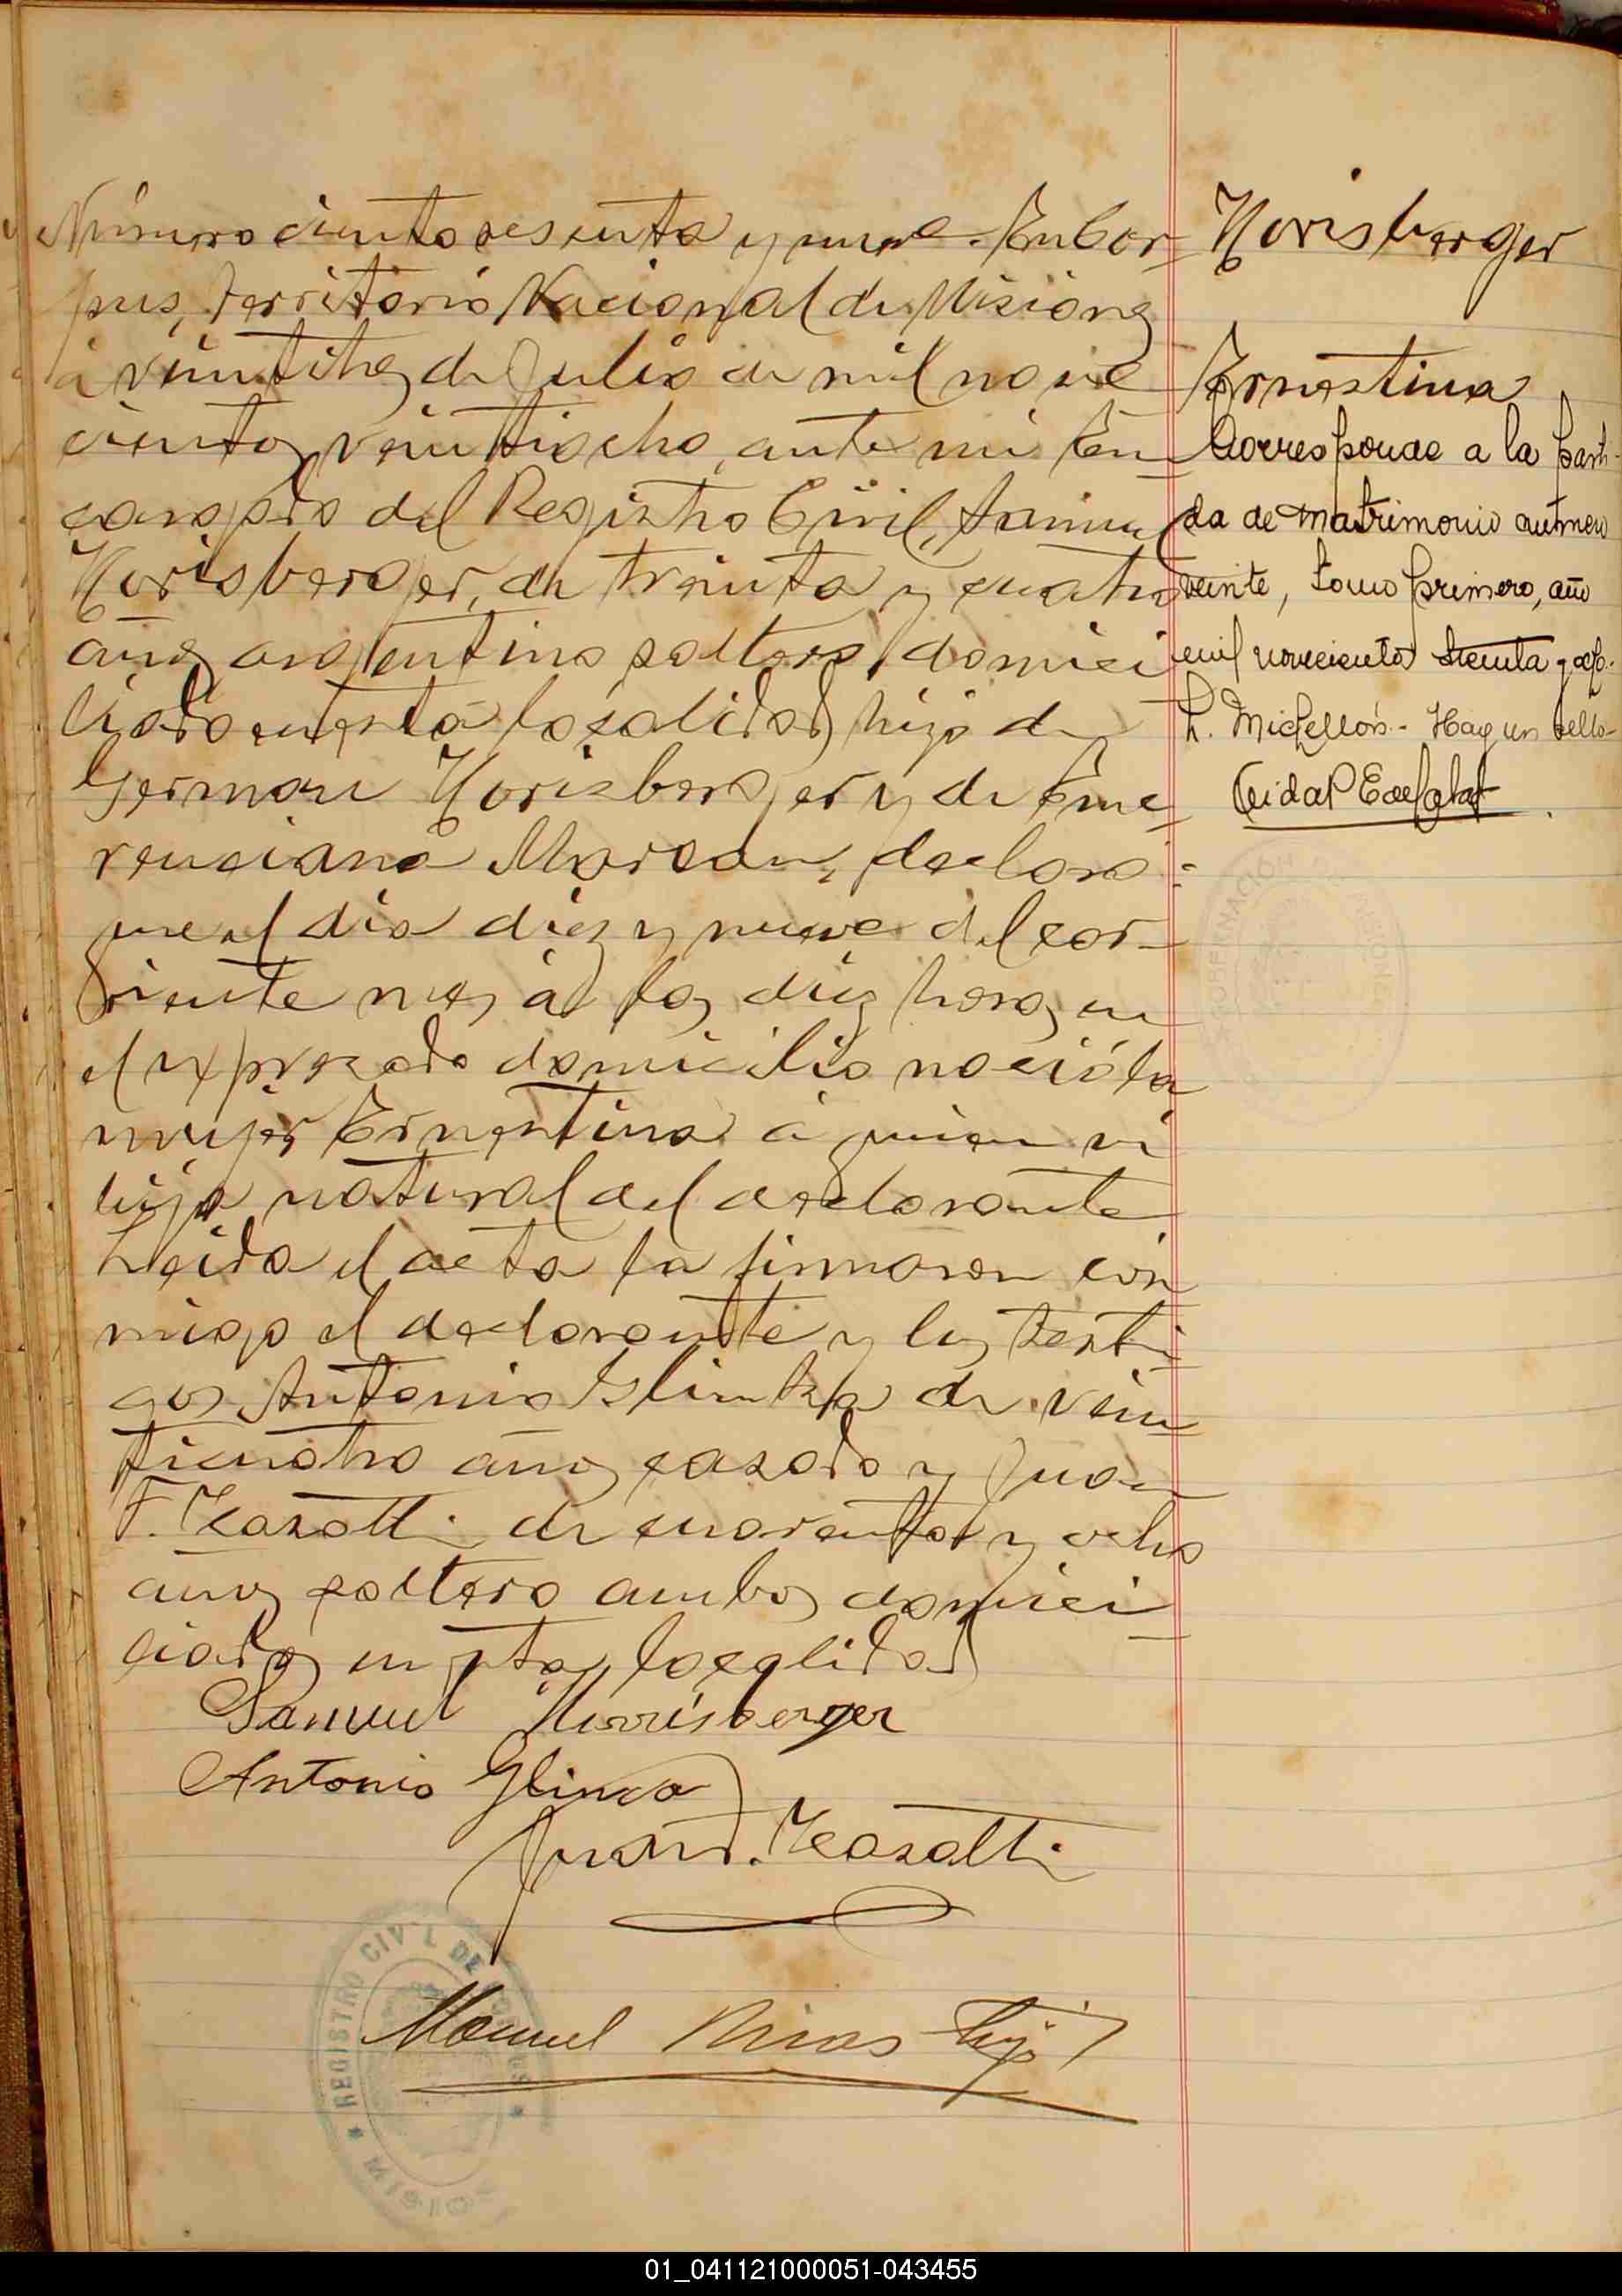 Número ciento sesenta y nueve. En Cor-
pus, Territorio Nacional de Misiones
á veintitres de Julio de mil nove
cientos veintiocho, ante mi En
cargado del Registro Civil, Samuel
Horisberger, de treinta y cuatro
años argentino soltero domici
liado en esta localidad hijo de
German Horisberger y de Eme
renciana declara:
que el dia diez y nueve del cor-
riente mes á las diez horas en
el expresado domicilio nació la
mujer Ernestina á quien vi
hija natural del declarante
Leida el acta la firmaron con
migo el declarante y los testi
gos Antonio Glinka de vein
ticuatro años casado y Juan
F. Casatti de cuarenta y ocho
años soltero ambos domici
liados en esta localidad
Samuel Horrisberger
Antonio Glinca
Juan F. Casatti
Manuel hijo
Horisberger
Ernestina
Corresponde a la parti-
da de matrimonio número
veinte, tomo primero, año
mil novecientos treinta y
Hay un sello-
REGISTRO CIVIL DE CORPUS
MISIONES
GOBERNACIÓN DE MISIONES
01_041121000051-043455